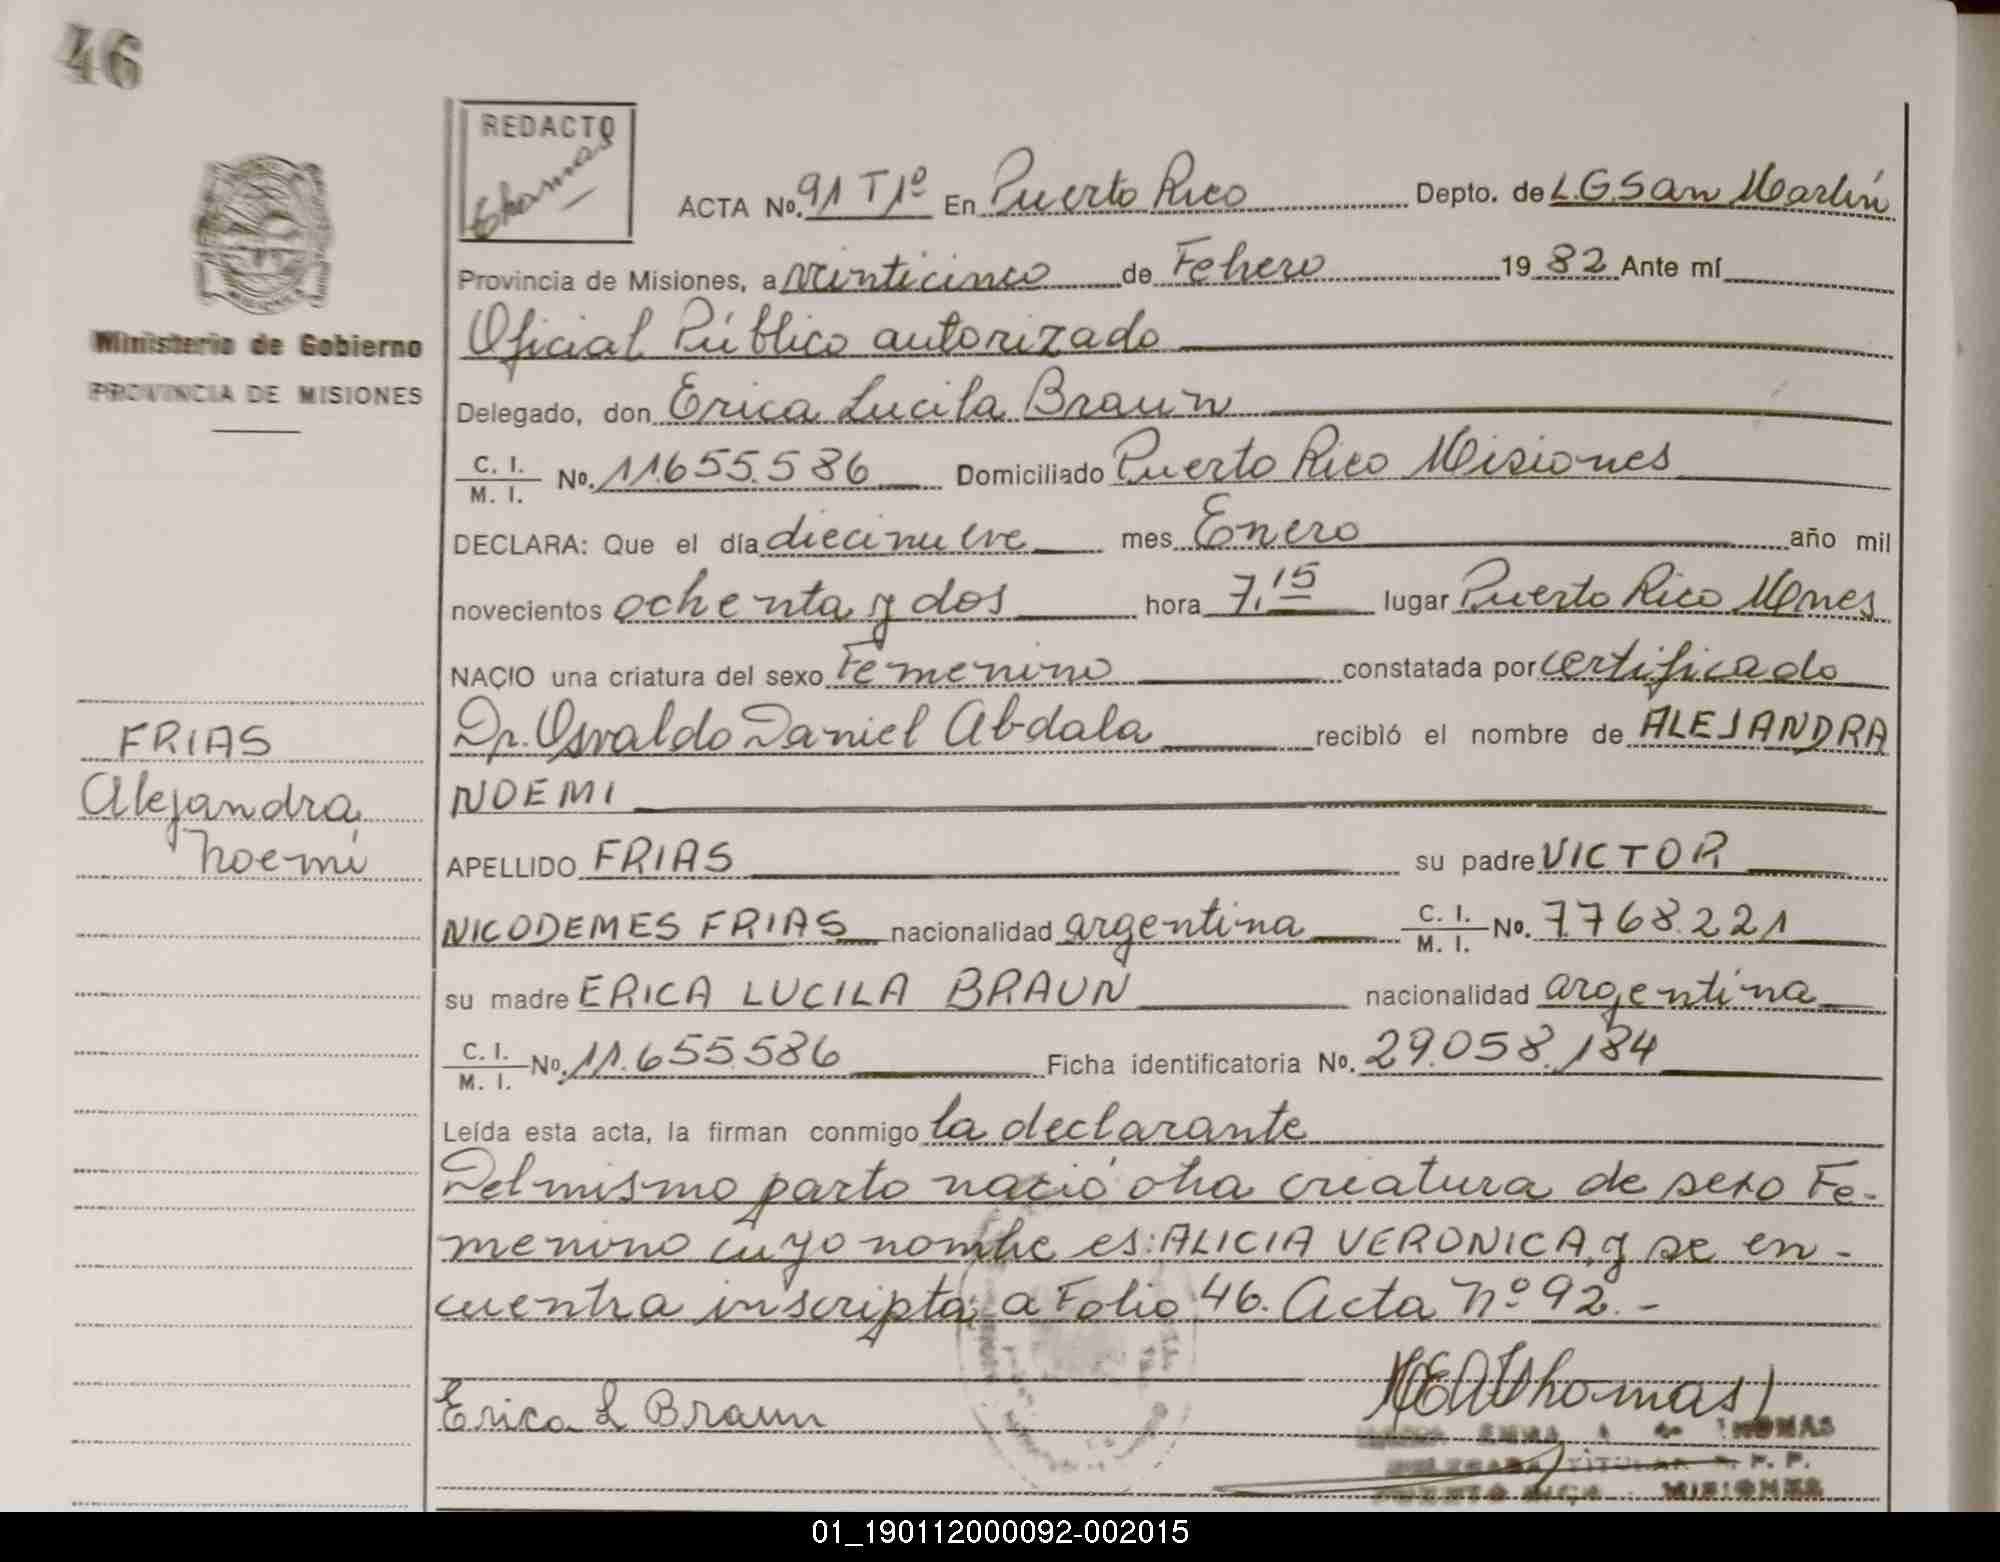 46
REDACTO
Thomas
ACTA No. 91 T1º En Puerto Rico Depto. de L.G.San Martín
Provincia de Misiones, a veinticinco de Febrero 19 82 Ante mí
Ministerio de Gobierno
PROVINCIA DE MISIONES
Oficial Público autorizado
Delegado, don Erica Lucila Braun
C. I. / M. I. No. 11.655.586 Domiciliado Puerto Rico Misiones
DECLARA: Que el día diecinueve mes Enero año mil
novecientos ochenta y dos hora 7,15 lugar Puerto Rico Mnes
NACIO una criatura del sexo Femenino constatada por certificado
Dr. Osvaldo Daniel Abdala recibió el nombre de ALEJANDRA
NOEMI
FRIAS
Alejandra
Noemí
APELLIDO FRIAS su padre VICTOR
NICODEMES FRIAS nacionalidad argentina C. I. / M. I. No. 7.768.221
su madre ERICA LUCILA BRAUN nacionalidad argentina
C. I. / M. I. No. 11.655.586 Ficha identificatoria No. 29.058.184
Leída esta acta, la firman conmigo la declarante
Del mismo parto nació otra criatura de sexo Fe-
menino cuyo nombre es: ALICIA VERONICA, y se en-
cuentra inscripta a Folio 46. Acta Nº 92.-
Erica L Braun
Thomas
EMMA A. de THOMAS
DELEGADA TITULAR R. P. P.
PUERTO RICO - MISIONES
01_190112000092-002015